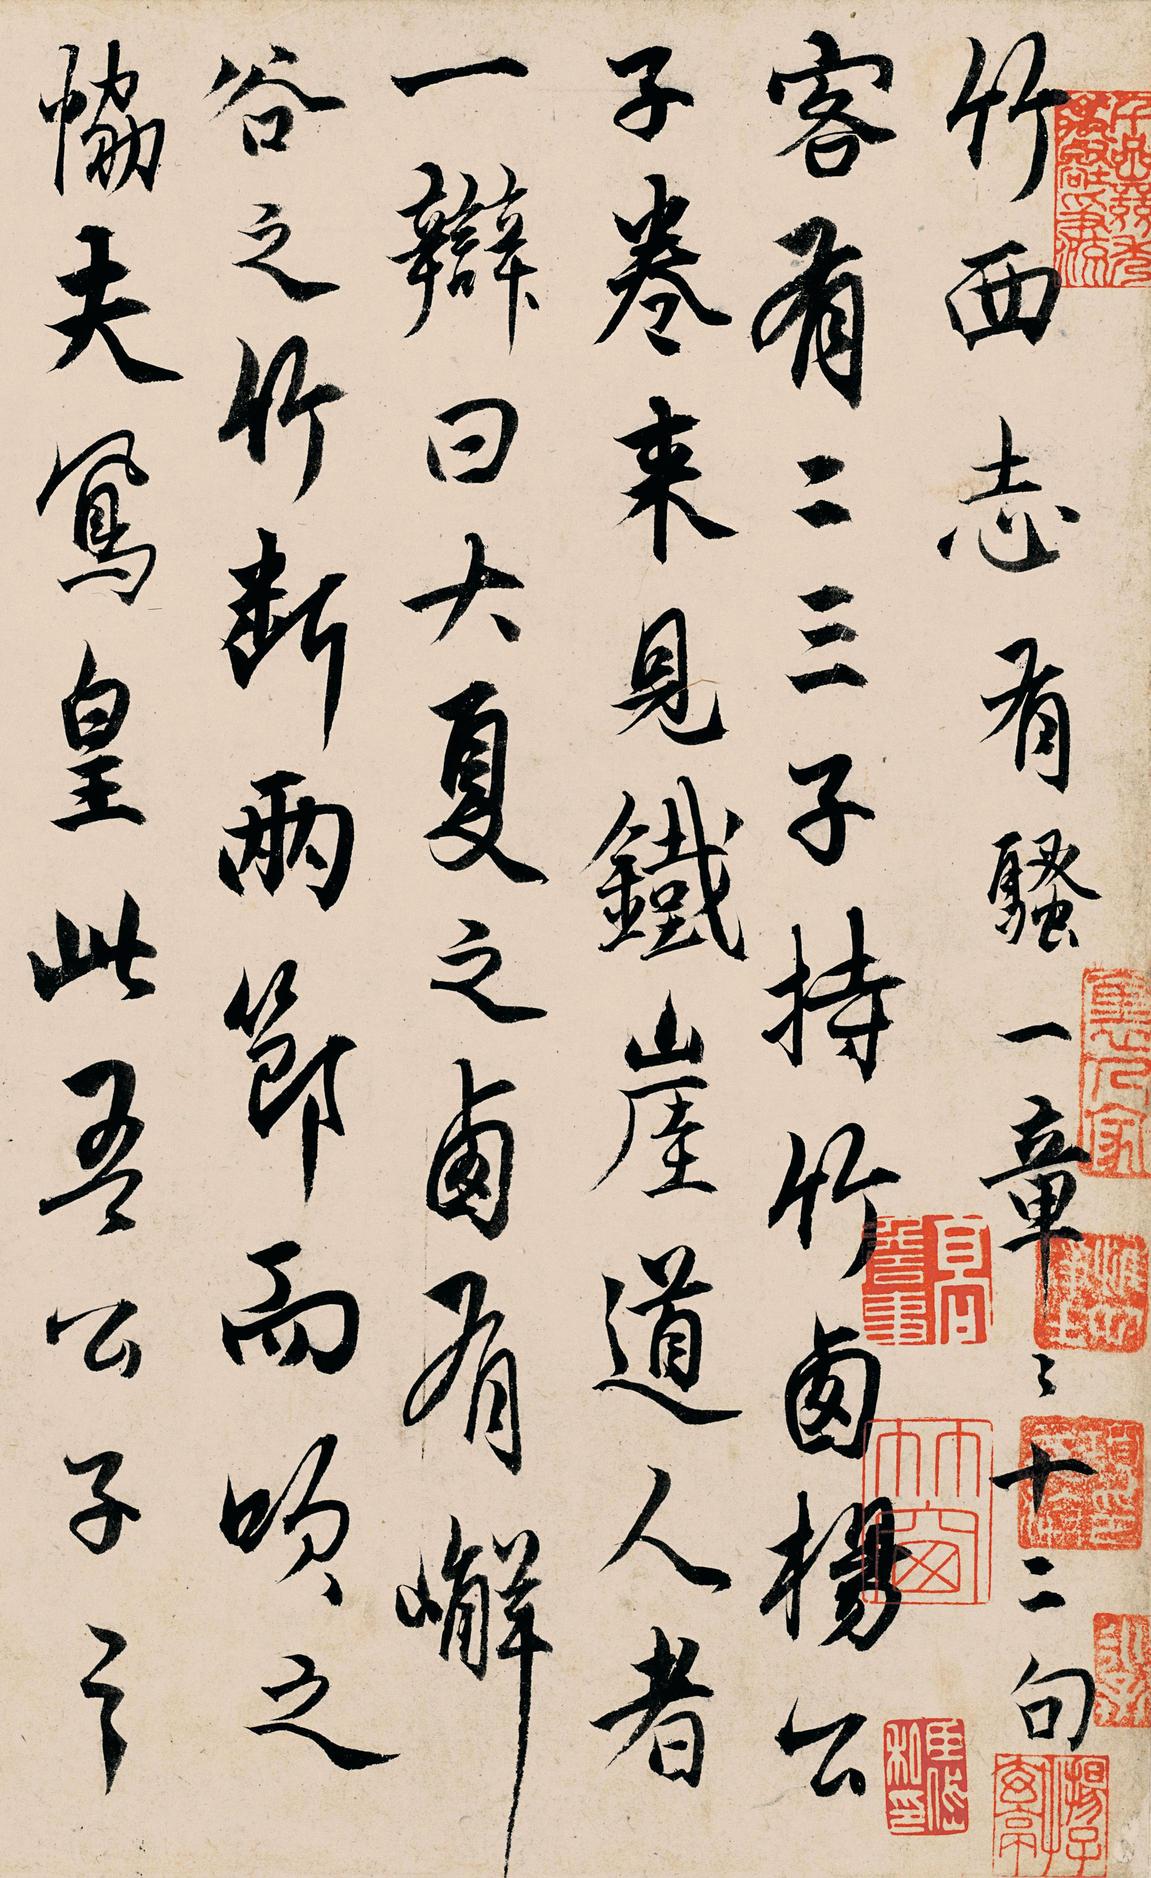 竹西志有騷一章〻十二句
客有二三子持竹卥楊公
子卷來見鐵崖道人者
一辯曰大夏之卥有嶰
谷之竹斷兩節而吹之
恊夫鳳皇此吾公子